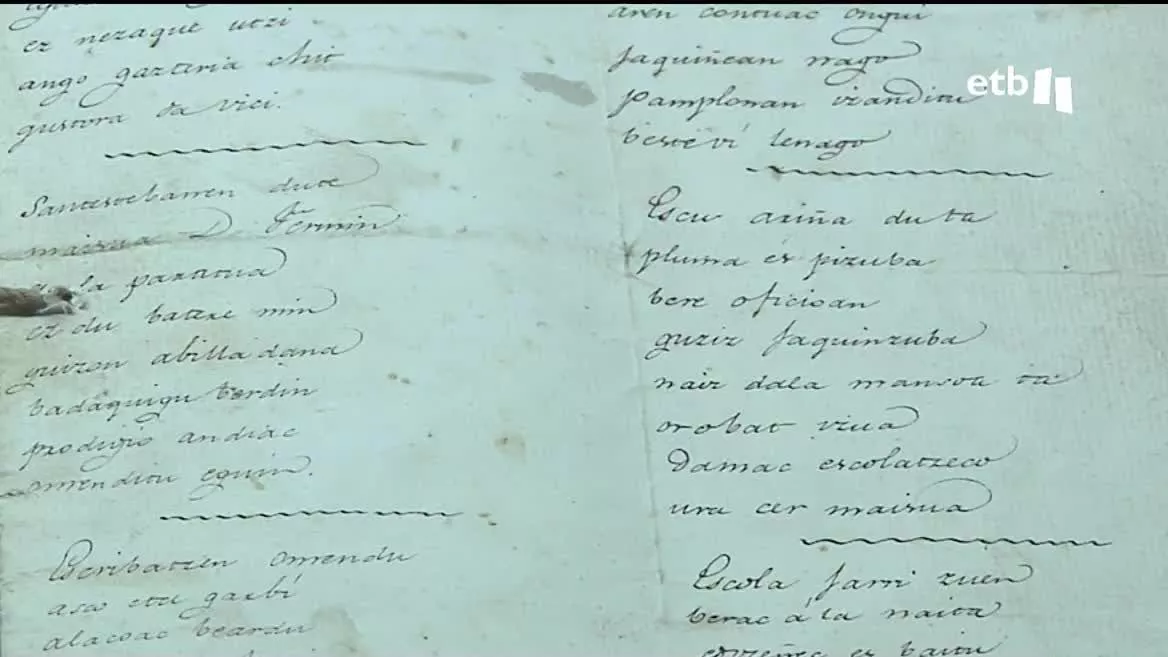 ez nezaque utzi
ango gazteria chit
gustora da vici.
Santestebarren dute
maisua D. Fermin
la partitua
ez du batere min
guizon abilla dana
badaquigu berdin
prodigio andiac
omenditu eguin.
Escribatzen omendu
asco eta garbi
alacoac beardu
aren contuac ongui
Jaquiñean nago
Pamplonan izanditu
beste vi lenago
Escu ariña du ta
pluma ez pizuba
bere oficioan
guziz Jaquinzuba
naiz dala mansoa ta
orobat viua
Damac escolatzeco
ura cer maisua
Escola Jarri zuen
berac á la naita
ez baitu
etb